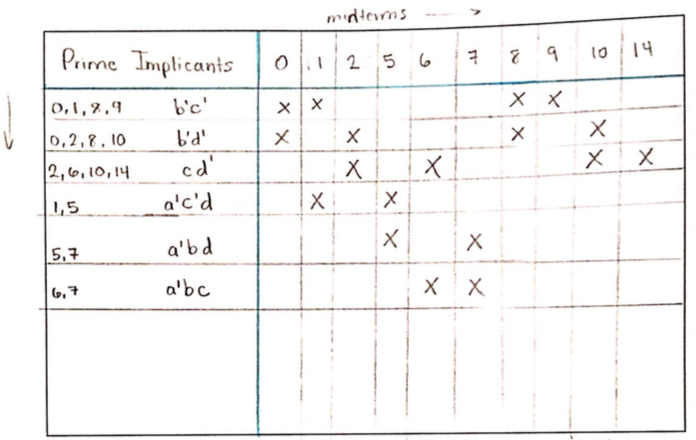 midterms →
Prime Implicants 0 1 2 5 6 7 8 9 10 14
0,1,8,9 b'c' x x x x
0,2,8,10 b'd' x x x x
2,6,10,14 cd' x x x x
1,5 a'c'd x x
5,7 a'bd x x
6,7 a'bc x x